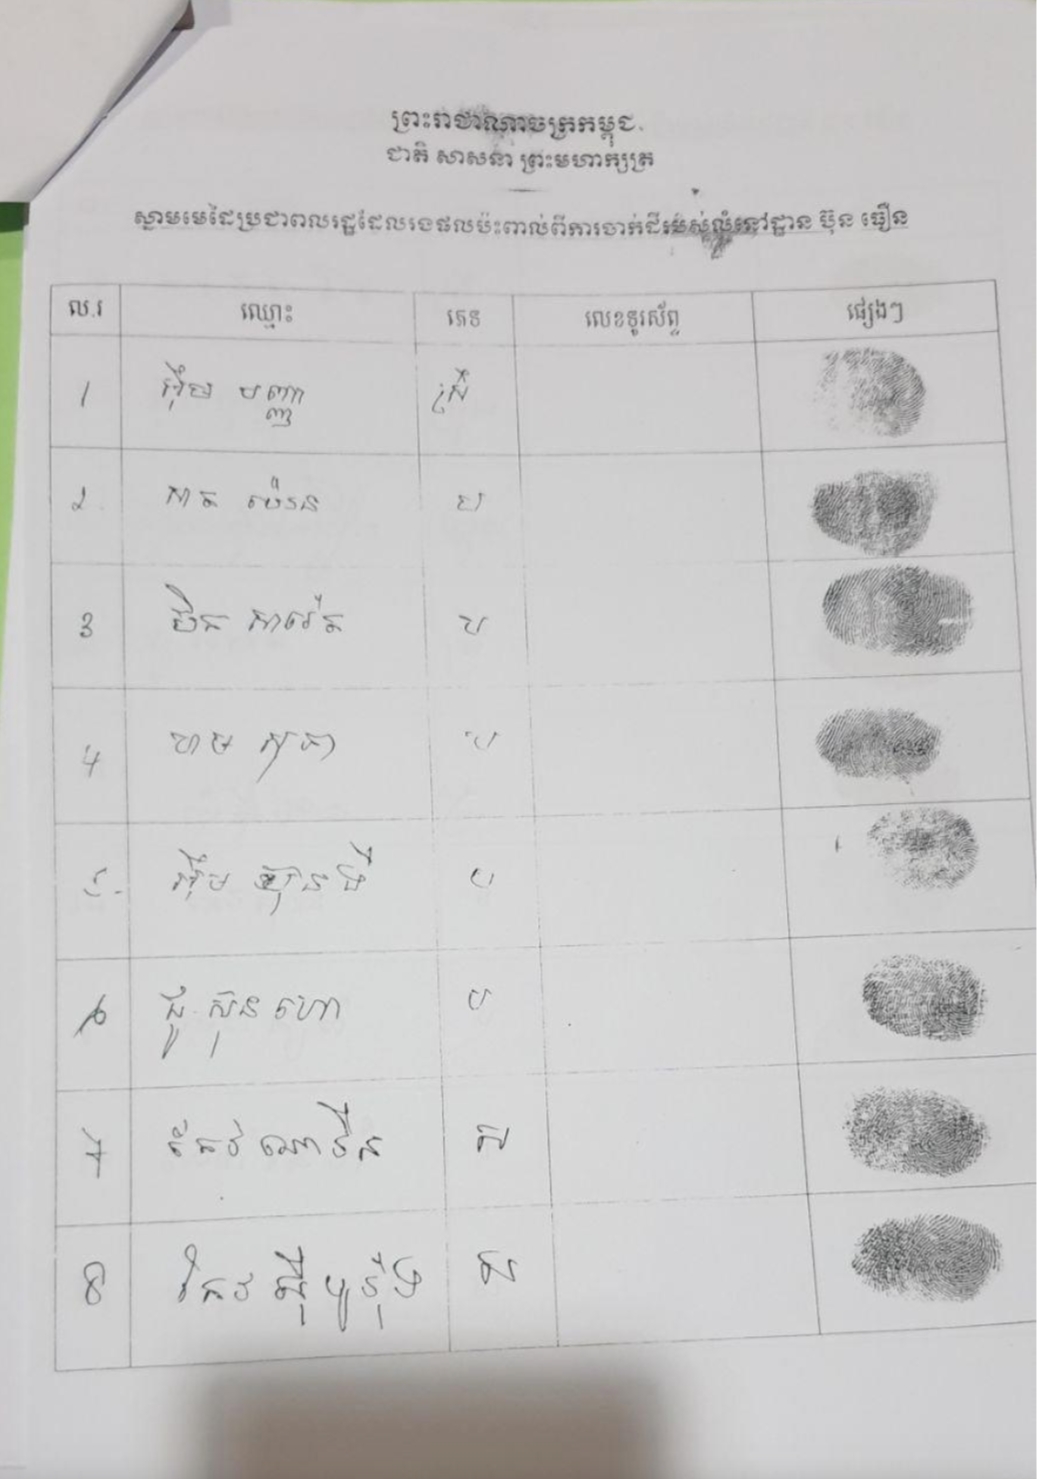 ព្រះរាជាណាចក្រកម្ពុជា
ជាតិ សាសនា ព្រះមហាក្សត្រ
ស្នាមមេដៃប្រជាពលរដ្ឋដែលរងផលប៉ះពាល់ពីការចាក់ដីរបស់លំនៅដ្ឋាន ប៊ុន ធឿន
ល.រ ឈ្មោះ ភេទ លេខទូរស័ព្ទ ផ្សេងៗ
1 អ៊ឹម បញ្ញា ស្រី
2 ប
3 ប
4 ហម សុភា ប
5 អ៊ឹម ប
6 ជូ ស៊ុន ហោ ប
7 កែវ ណាវីន ស
8 កែវ ស